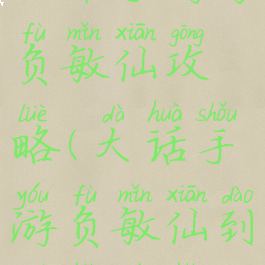 fù mǐn xiān gōng
负敏仙攻
lüè dà huà shǒu
略(大话手
yóu fù mǐn xiān dào
游负敏仙到